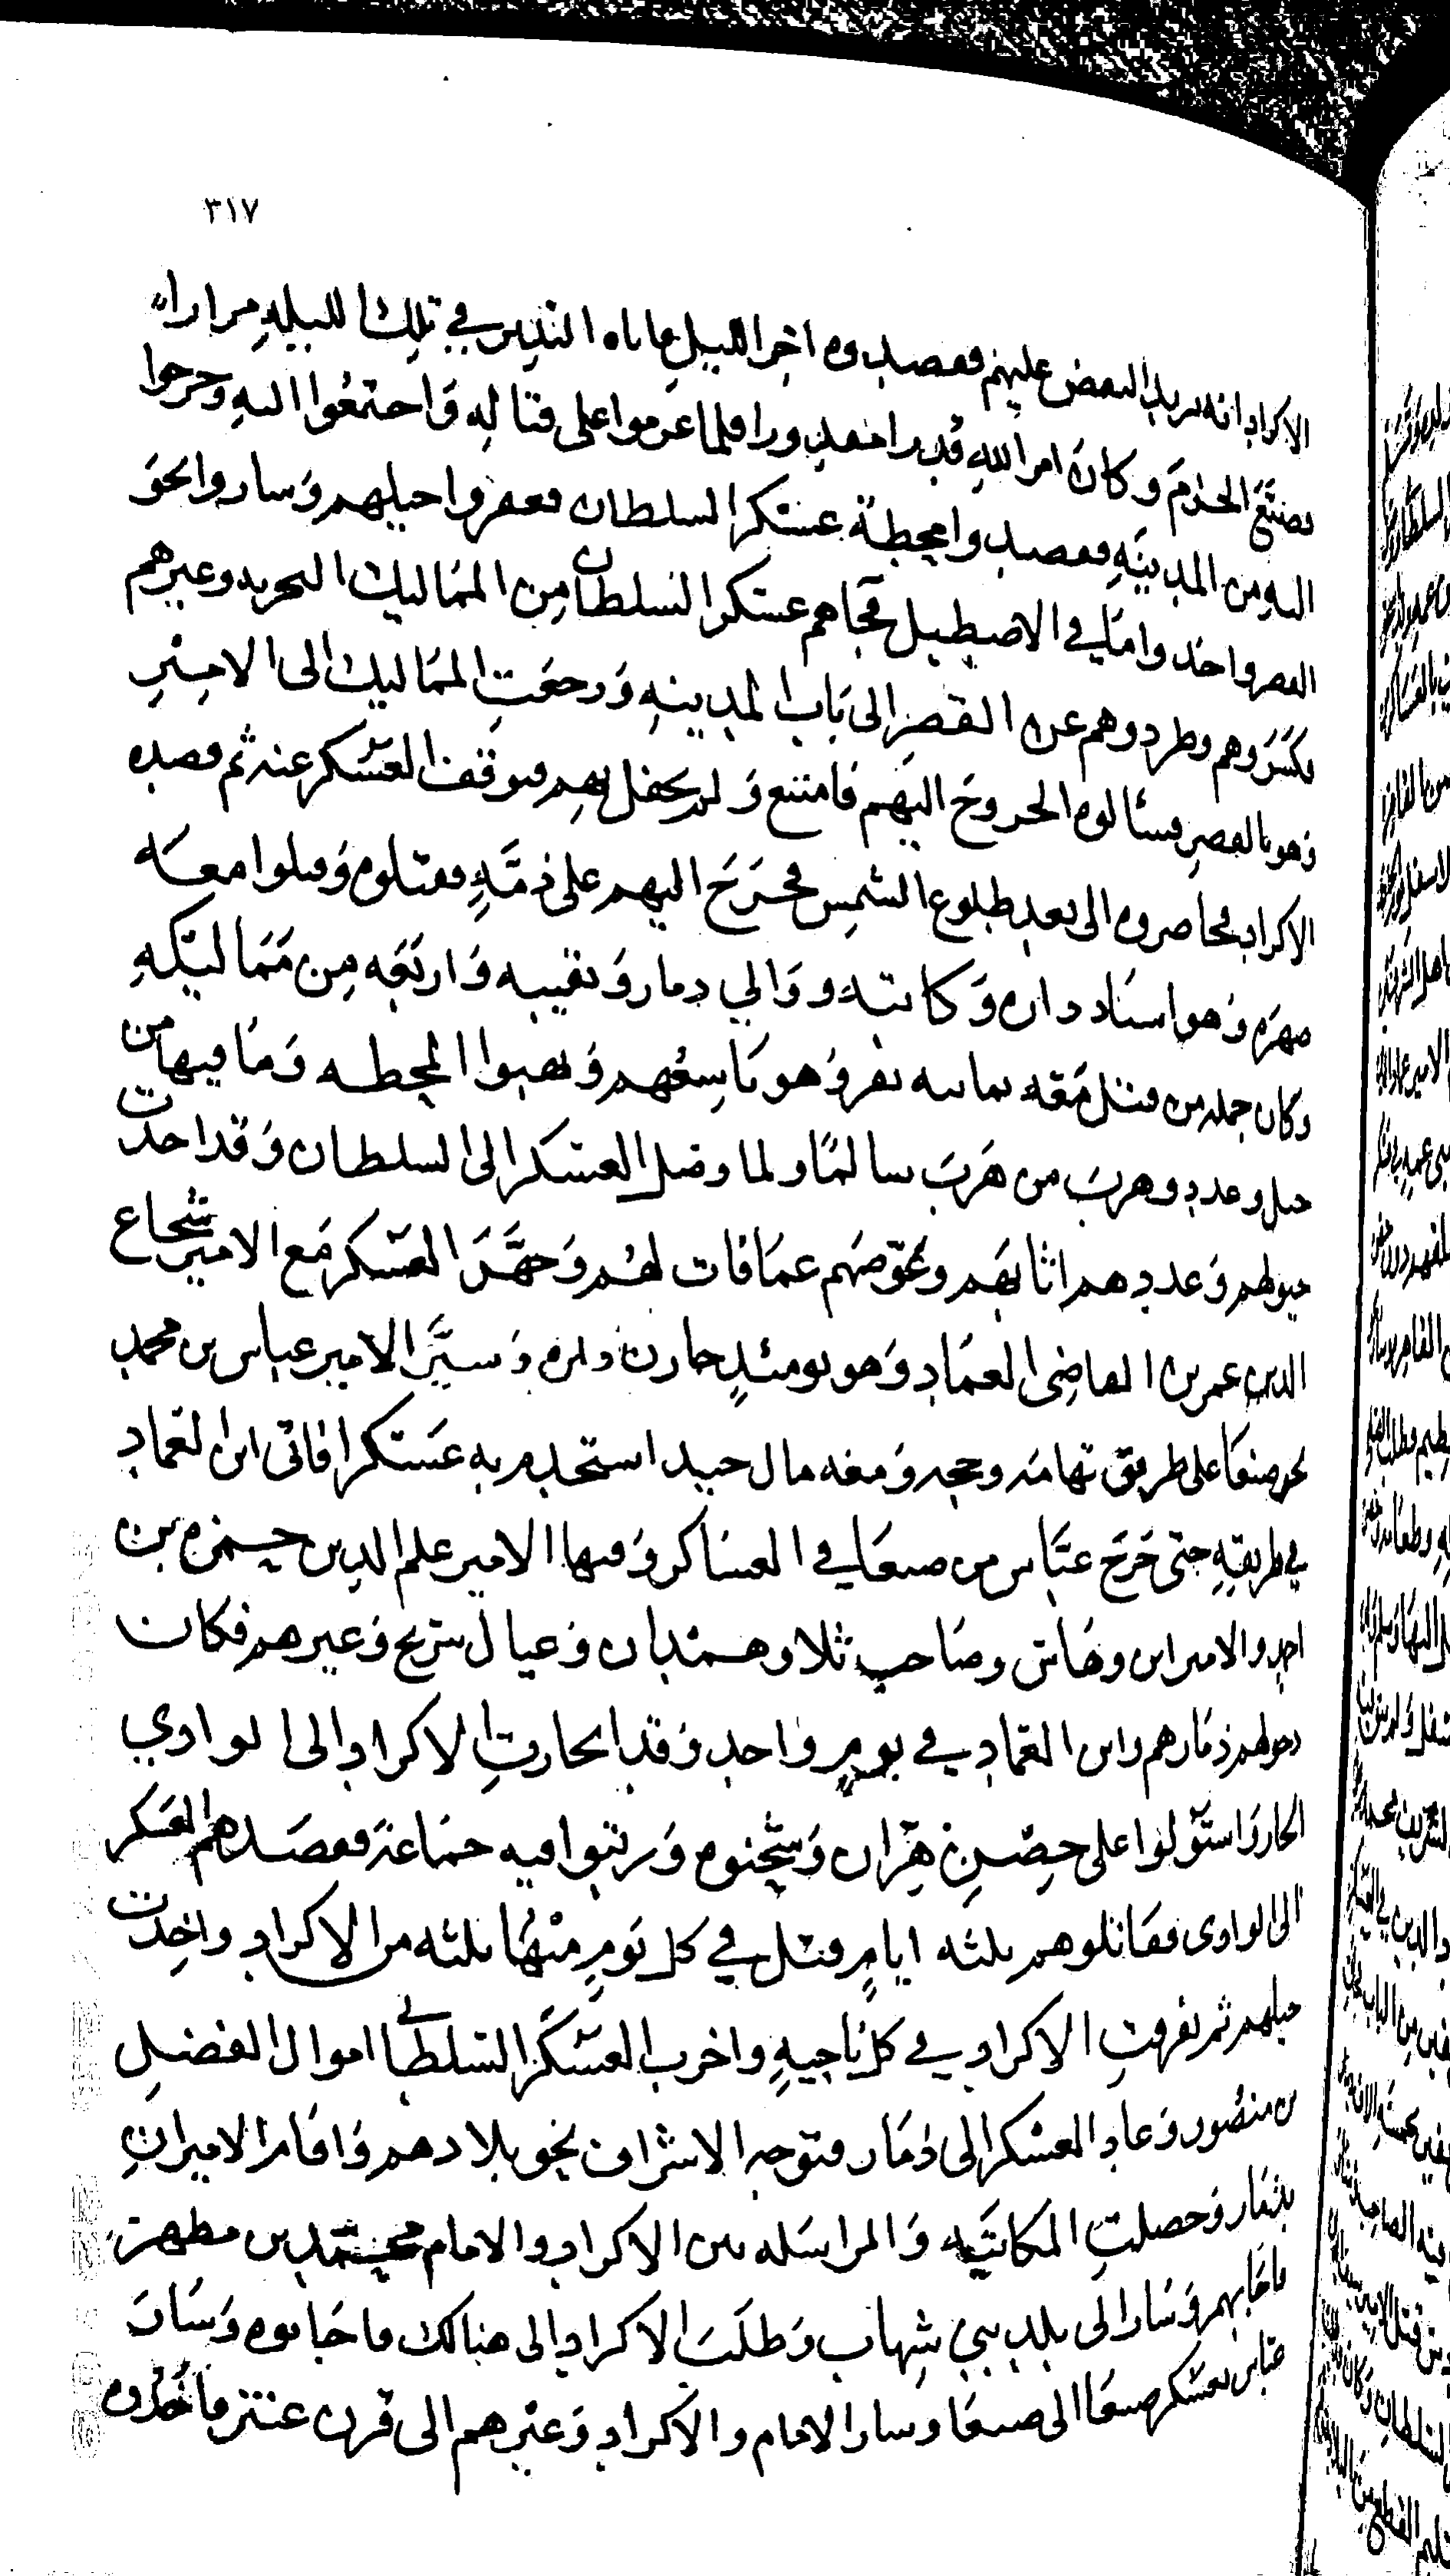 ٣١٧
الاكراد انه يريد القبض عليهم فقصدوه اخر الليل فاتاه النذير في تلك الليلة مرارا
فضيّع الحزم وكان امر الله قدرا مقدورا فلما عزموا على قتاله واجتمعوا اليه وخرجوا
اليه من المدينة فقصدوا محطة عسكر السلطان فعقروا خيلهم وساروا نحو
القصر واخذوا ما في الاصطبل فجاهم عسكر السلطان من المماليك البحرية وغيرهم
فكسروهم وطردوهم عن القصر الى باب المدينة ورجعت المماليك الى الامير
وهو بالقصر فسالوه الخروج اليهم فامتنع ولم يحفل بهم فوقف العسكر عنه ثم قصده
الاكراد فحاصروه الى بعد طلوع الشمس فخرج اليهم على ذمّة فقتلوه وقتلوا معه
صهره وهو استاد داره وكاتبه ووالي دمار ونقيبه واربعه من مماليكه
وكان جمله من قتل معه ثمانيه نفر وهو تاسعهم ونهبوا المحطه وما فيها من
خيل وعدد وهرب من هرب سالما ولما وصل العسكر الى السلطان وقد اخذت
خيولهم وعددهم اثابهم وعوّضهم عما فات لهم وجهّز العسكر مع الامير شجاع
الدين عمر بن القاضي العماد وهو يومئذ وسيّر الامير عباس بن محمد
نحو صنعا على طريق تهامه وحجه ومعه مال جيد استخدم به عسكرا فاتى ابن العماد
في طريقه حتى خرج عبّاس من صنعا في العساكر وفيها الامير علم الدين حمزه بن
احمد والامير ابن وهاش وصاحب ثلا وهمدان وعيال سريح وغيرهم فكان
دخولهم ذمار هم وابن العماد في يوم واحد وقد انحازت الاكراد الى الوادي
الحار واستولوا على حصن هرّان وشحنوه ورتبوا فيه جماعة فقصدهم العسكر
الى الوادي فقاتلوهم ثلثه ايام قتل في كل يوم منها ثلثه من الاكراد واخذت
خيلهم ثم تفرقت الاكراد في كل ناحية واخرب العسكر السلطاني اموال الفضل
بن منصور وعاد العسكر الى ذمار فتوجه الاشراف نحو بلادهم واقام الاميران
بذمار وحصلت المكاتبه والمراسله بين الاكراد والامام محمد بن مطهر
فاجابهم وسار الى بلد بني شهاب وطلب الاكراد الى هنالك فاجابوه وسار
عبّاس بعسكر صنعا الى صنعا وسار الامام والاكراد وغيرهم الى قرن عنتر فاخذوه